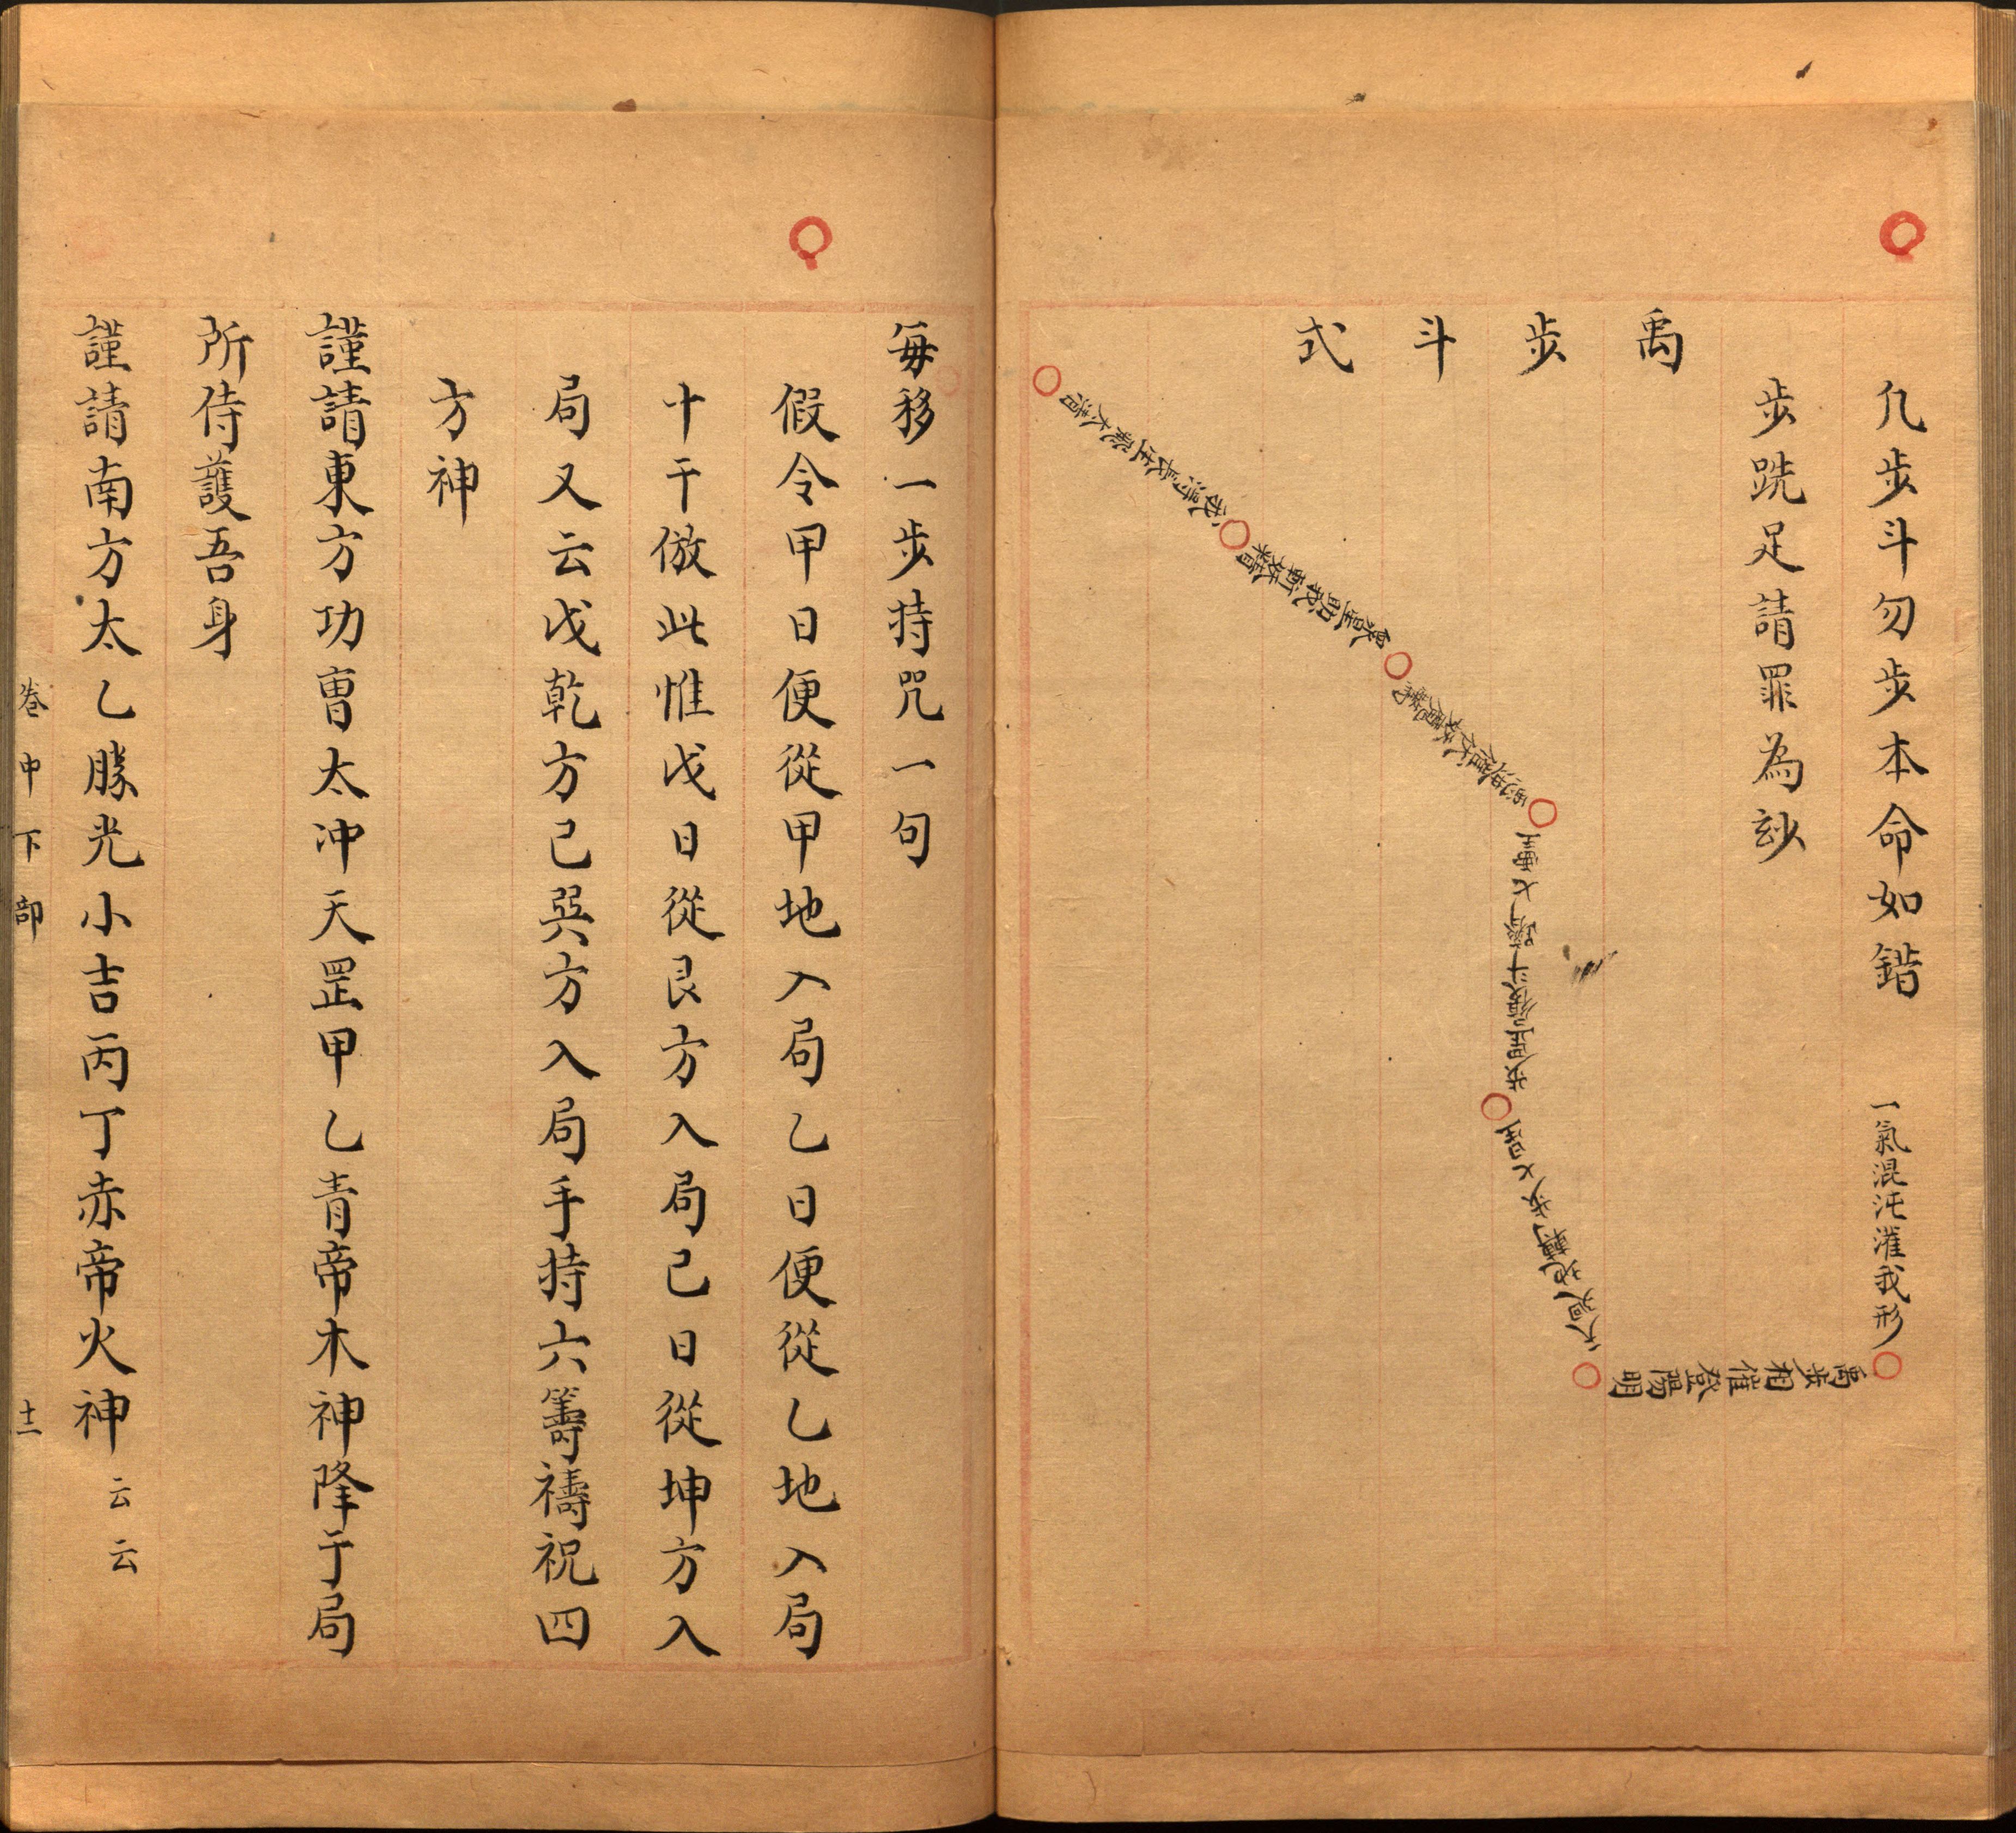 凡步斗勿步本命如錯
一氣混沌灌我形
步跣足請罪為玅
禹步斗式
禹步相催登陽明
天廻地轉步七星
步罡履斗躋七靈
伏妖魔驚
衆星助我斬妖精
我得長生太清
每移一步持咒一句
假令甲日便從甲地入局乙日便從乙地入局
十干倣此惟戊日從艮方入局己日從坤方入
局又云戊乾方己巽方入局手持六籌禱祝四
方神
謹請東方功曹太冲天罡甲乙青帝木神降于局
所侍護吾身
謹請南方太乙勝光小吉丙丁赤帝火神云云
卷中下部
十二